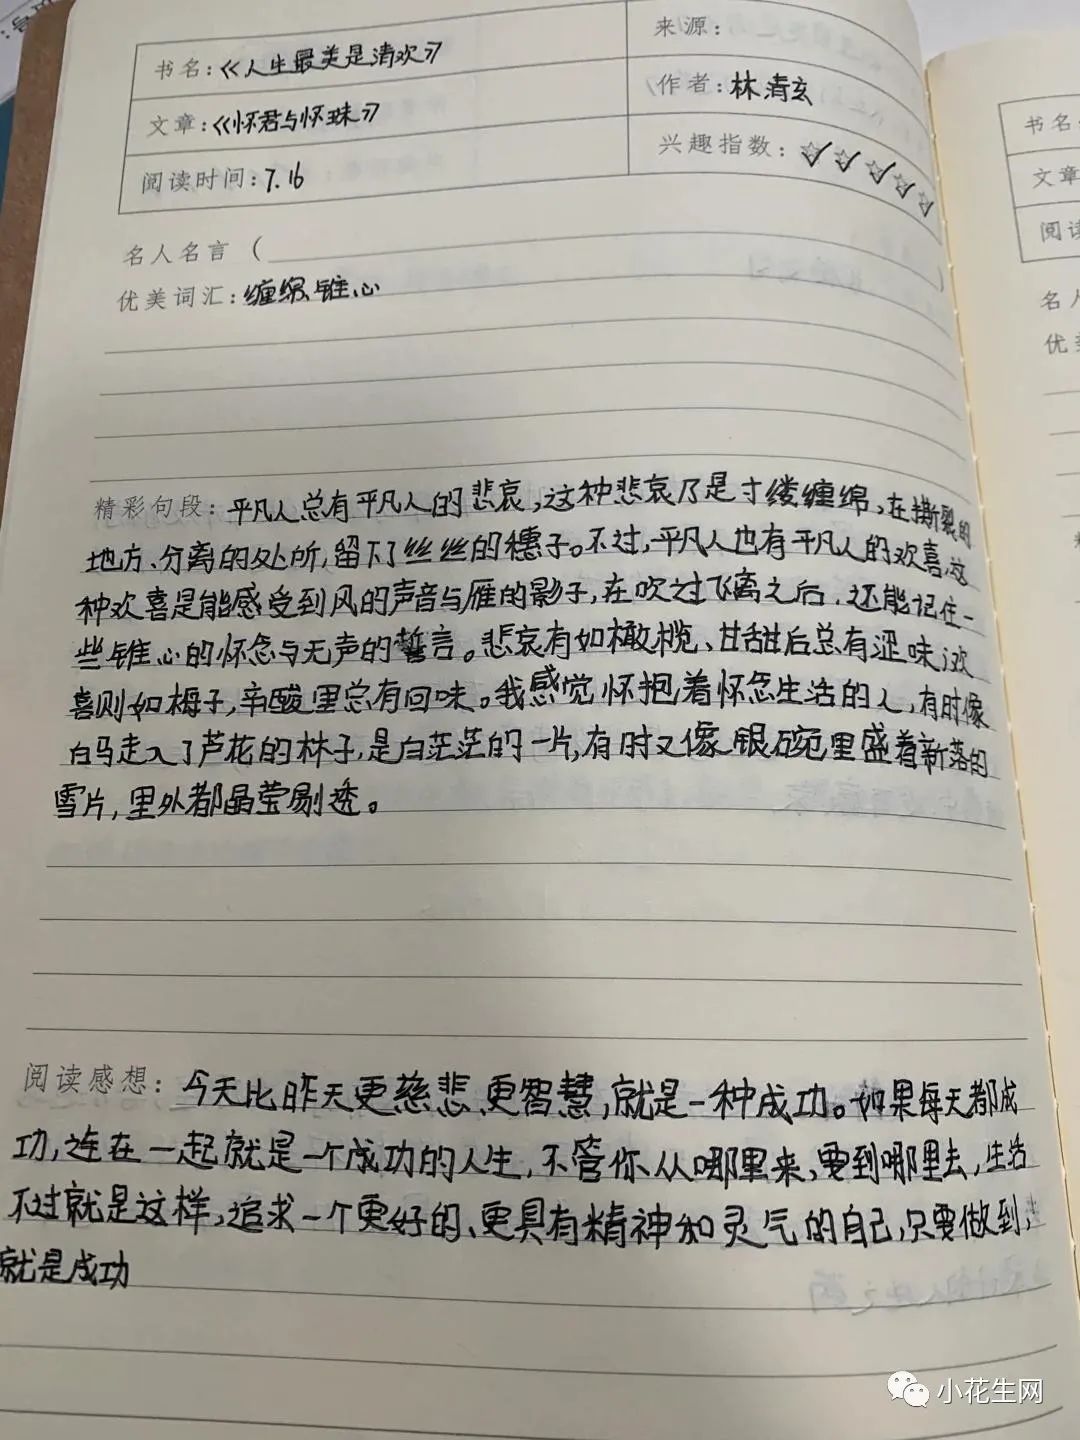 书名:《人生最美是清欢》
来源:
文章:《怀君与怀珠》
作者:林清玄
阅读时间:7.16
兴趣指数:☆☆☆☆☆
名人名言(
)
优美词汇:缠绵、锥心
精彩句段:平凡人总有平凡人的悲哀,这种悲哀乃是寸缕缠绵,在撕裂的
地方、分离的处所,留下了丝丝的穗子。不过,平凡人也有平凡人的欢喜,这
种欢喜是能感受到风的声音与雁的影子,在吹过飞离之后,还能记住一
些锥心的怀念与无声的誓言。悲哀有如橄榄、甘甜后总有涩味;欢
喜则如梅子,辛酸里总有回味。我感觉怀抱着怀念生活的人,有时像
白马走入了芦花的林子,是白茫茫的一片,有时又像银碗里盛着新落的
雪片,里外都晶莹剔透。
阅读感想:今天比昨天更慈悲、更智慧,就是一种成功。如果每天都成
功,连在一起就是一个成功的人生,不管你从哪里来,要到哪里去,生活
不过就是这样,追求一个更好的、更具有精神和灵气的自己,只要做到,
就是成功
书名
文章
阅读
名人
优美
小花生网